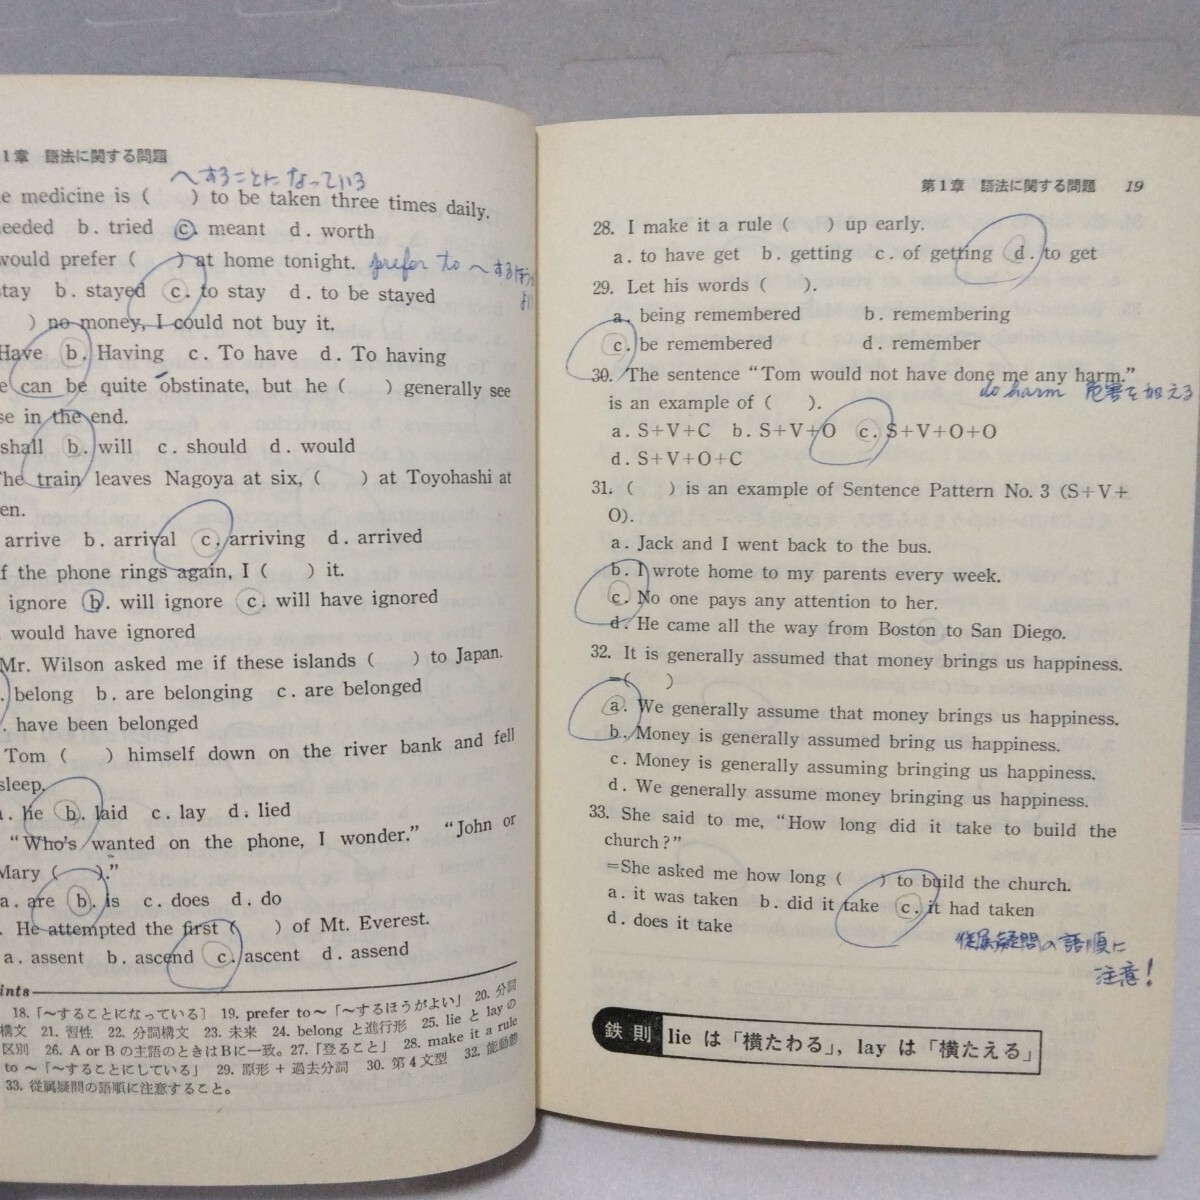 1章 語法に関する問題
～することになっている
e medicine is ( ) to be taken three times daily.
eeded b. tried c. meant d. worth
would prefer ( ) at home tonight. prefer to ～するほうが
よい
stay b. stayed c. to stay d. to be stayed
) no money, I could not buy it.
Have b. Having c. To have d. To having
e can be quite obstinate, but he ( ) generally see
se in the end.
shall b. will c. should d. would
The train leaves Nagoya at six, ( ) at Toyohashi at
en.
arrive b. arrival c. arriving d. arrived
f the phone rings again, I ( ) it.
ignore b. will ignore c. will have ignored
. would have ignored
Mr. Wilson asked me if these islands ( ) to Japan.
. belong b. are belonging c. are belonged
. have been belonged
Tom ( ) himself down on the river bank and fell
sleep.
a. lie b. laid c. lay d. lied
"Who's wanted on the phone, I wonder." "John or
Mary ( )."
a. are b. is c. does d. do
. He attempted the first ( ) of Mt. Everest.
a. assent b. ascend c. ascent d. assend
ints
18.「～することになっている」 19. prefer to～「～するほうがよい」 20. 分詞
構文 21. 習性 22. 分詞構文 23. 未来 24. belong と進行形 25. lie と lay の
区別 26. A or B の主語のときはBに一致。27.「登ること」 28. make it a rule
to ～「～することにしている」 29. 原形 + 過去分詞 30. 第4文型 32. 能動態
33. 従属疑問の語順に注意すること。
第1章 語法に関する問題 19
28. I make it a rule ( ) up early.
a. to have get b. getting c. of getting d. to get
29. Let his words ( ).
a. being remembered b. remembering
c. be remembered d. remember
30. The sentence "Tom would not have done me any harm."
do harm 危害を加える
is an example of ( ).
a. S+V+C b. S+V+O c. S+V+O+O
d. S+V+O+C
31. ( ) is an example of Sentence Pattern No. 3 (S+V+
O).
a. Jack and I went back to the bus.
b. I wrote home to my parents every week.
c. No one pays any attention to her.
d. He came all the way from Boston to San Diego.
32. It is generally assumed that money brings us happiness.
=( )
a. We generally assume that money brings us happiness.
b. Money is generally assumed bring us happiness.
c. Money is generally assuming bringing us happiness.
d. We generally assume money bringing us happiness.
33. She said to me, "How long did it take to build the
church?"
=She asked me how long ( ) to build the church.
a. it was taken b. did it take c. it had taken
d. does it take
従属疑問の語順に
注意!
鉄則 lie は「横たわる」, lay は「横たえる」